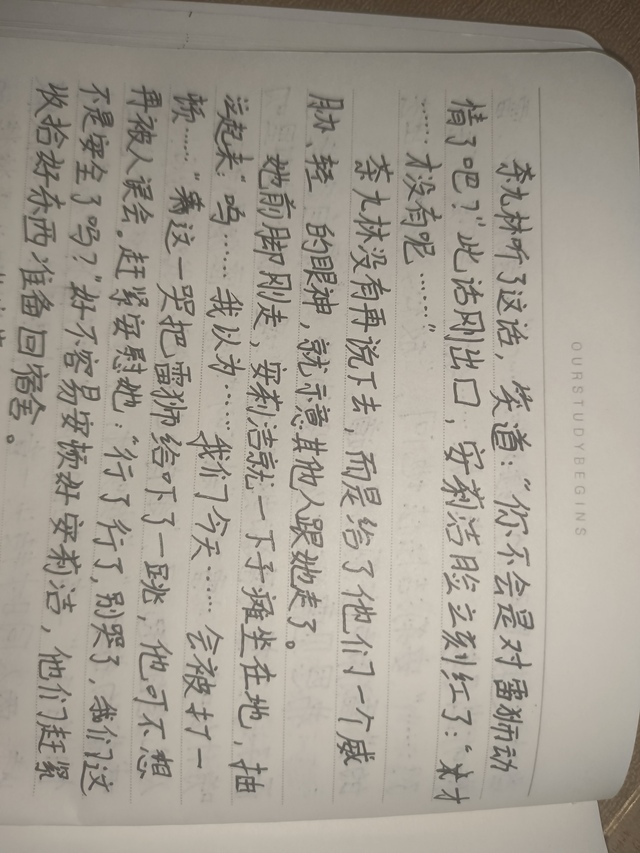 OURSTUDYBEGINS
茶九林听了这话，笑道：“你不会是对雷狮动
情了吧？”此话刚出口，安莉洁脸立刻红了：“才
……才没有呢……”
茶九林没有再说下去，而是给了他们一个威
胁、轻 的眼神，就示意其他人跟她走了。
她前脚刚走，安莉洁就一下子摊坐在地，抽
泣起来“呜……我以为……我们今天……会被打一
顿……”这一哭把雷狮给吓了一跳，他可不想
再被人误会。赶紧安慰她：“行了行了，别哭了，我们这
不是安全了吗？”好不容易安顿好安莉洁，他们赶紧
收拾好东西准备回宿舍。